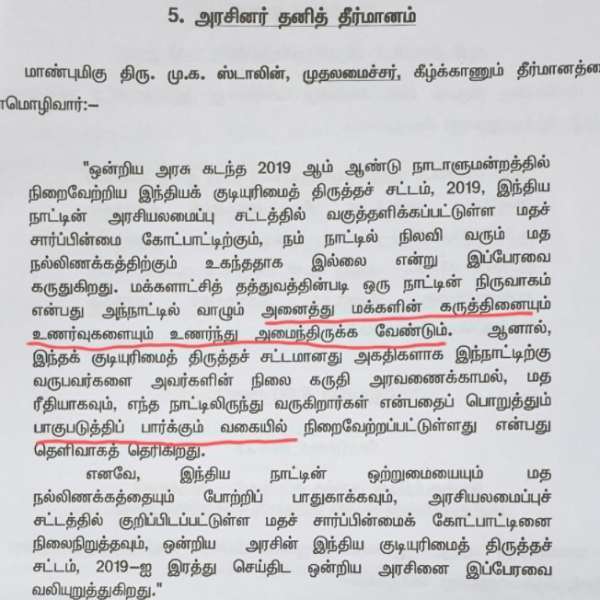 5. அரசினர் தனித் தீர்மானம்
மாண்புமிகு திரு. மு.க. ஸ்டாலின், முதலமைச்சர், கீழ்க்காணும் தீர்மானத்தை
மொழிவார்:–
"ஒன்றிய அரசு கடந்த 2019 ஆம் ஆண்டு நாடாளுமன்றத்தில்
நிறைவேற்றிய இந்தியக் குடியுரிமைத் திருத்தச் சட்டம், 2019, இந்திய
நாட்டின் அரசியலமைப்பு சட்டத்தில் வகுத்தளிக்கப்பட்டுள்ள மதச்
சார்பின்மை கோட்பாட்டிற்கும், நம் நாட்டில் நிலவி வரும் மத
நல்லிணக்கத்திற்கும் உகந்ததாக இல்லை என்று இப்பேரவை
கருதுகிறது. மக்களாட்சித் தத்துவத்தின்படி ஒரு நாட்டின் நிருவாகம்
என்பது அந்நாட்டில் வாழும் அனைத்து மக்களின் கருத்தினையும்
உணர்வுகளையும் உணர்ந்து அமைந்திருக்க வேண்டும். ஆனால்,
இந்தக் குடியுரிமைத் திருத்தச் சட்டமானது அகதிகளாக இந்நாட்டிற்கு
வருபவர்களை அவர்களின் நிலை கருதி அரவணைக்காமல், மத
ரீதியாகவும், எந்த நாட்டிலிருந்து வருகிறார்கள் என்பதைப் பொறுத்தும்
பாகுபடுத்திப் பார்க்கும் வகையில் நிறைவேற்றப்பட்டுள்ளது என்பது
தெளிவாகத் தெரிகிறது.
எனவே, இந்திய நாட்டின் ஒற்றுமையையும் மத
நல்லிணக்கத்தையும் போற்றிப் பாதுகாக்கவும், அரசியலமைப்புச்
சட்டத்தில் குறிப்பிடப்பட்டுள்ள மதச் சார்பின்மைக் கோட்பாட்டினை
நிலைநிறுத்தவும், ஒன்றிய அரசின் இந்திய குடியுரிமைத் திருத்தச்
சட்டம், 2019-ஐ இரத்து செய்திட ஒன்றிய அரசினை இப்பேரவை
வலியுறுத்துகிறது."